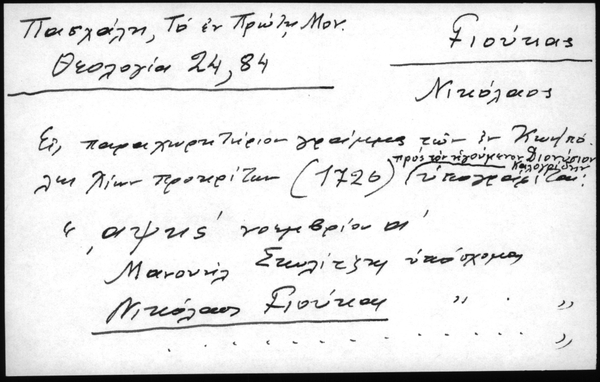 Πασχάλη, Τό ἐν Πρώτῃ Μον.
Θεολογία 24, 84
Γιούκας
Νικόλαος
Εἰς παραχωρητήριον γράμμα τῶν ἐν Κων/πό-
λει Χίων προκρίτων (1726) πρὸς τὸν ἡγούμενον Διονύσιον Καλογρίδην ὑπογράφεται:
"͵αψκϛ΄ νοεμβρίου α΄
Μανουήλ Σκυλίτζης ὑπόσχομαι
Νικόλαος Γιούκας " . "
. . . . . . . . . . . "